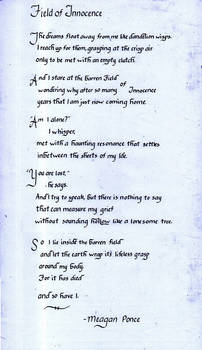 Field of Innocence
The dreams float away from me like dandelion wisps.
I reach for them, grasping at the crisp air
only to be met with an empty clutch.
And I stare at the barren field
of
wondering why after so many Innocence
years that I am just now coming home.
Am I alone?"
I whisper,
met with a haunting resonance that settles
inbetween the sheets of my life.
"You are lost,"
he says.
And I try to speak, but there is nothing to say
that can measure my grief
without sounding hallow like a lonesome tree.
So I lie inside the barren field
and let the earth wrap its lifeless grasp
around my body.
For it has died
and so have I.
-Meagan Ponce